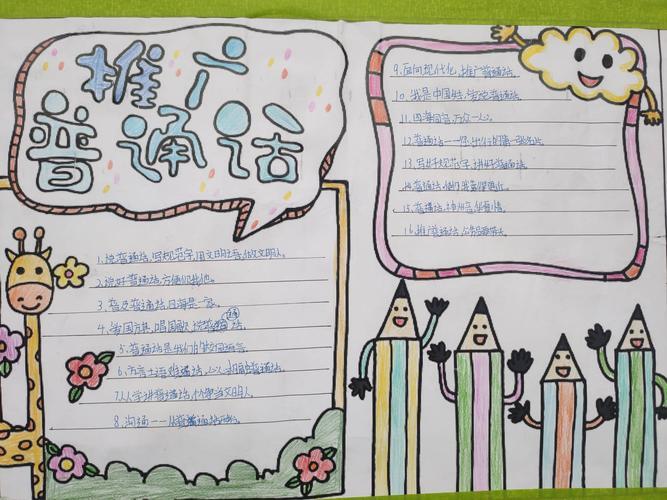 推广
普通话
1.说普通话,写规范字,用文明语,做文明人。
2.说好普通话,方便你我他。
3.普及普通话,四海是一家。
4.爱国旗,唱国歌,说普通话。
5.普通话是我们的校园语言。
6.方言土语难通话,心心相印普通话。
7.人人学讲普通话,做文明人。
8.沟通——从普通话开始。
9.面向现代化,推广普通话。
10.我是中国娃,爱说普通话。
11.四海同音,万众一心。
12.普通话——你的第一张名片。
13.写好规范字,讲好普通话。
14.普通话,使你我靠得更近。
15.普通话,神州音,华夏情。
16.推广普通话